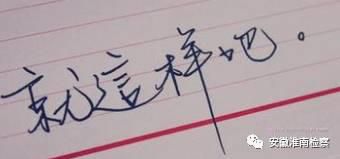 就這样吧。
安徽淮南检察